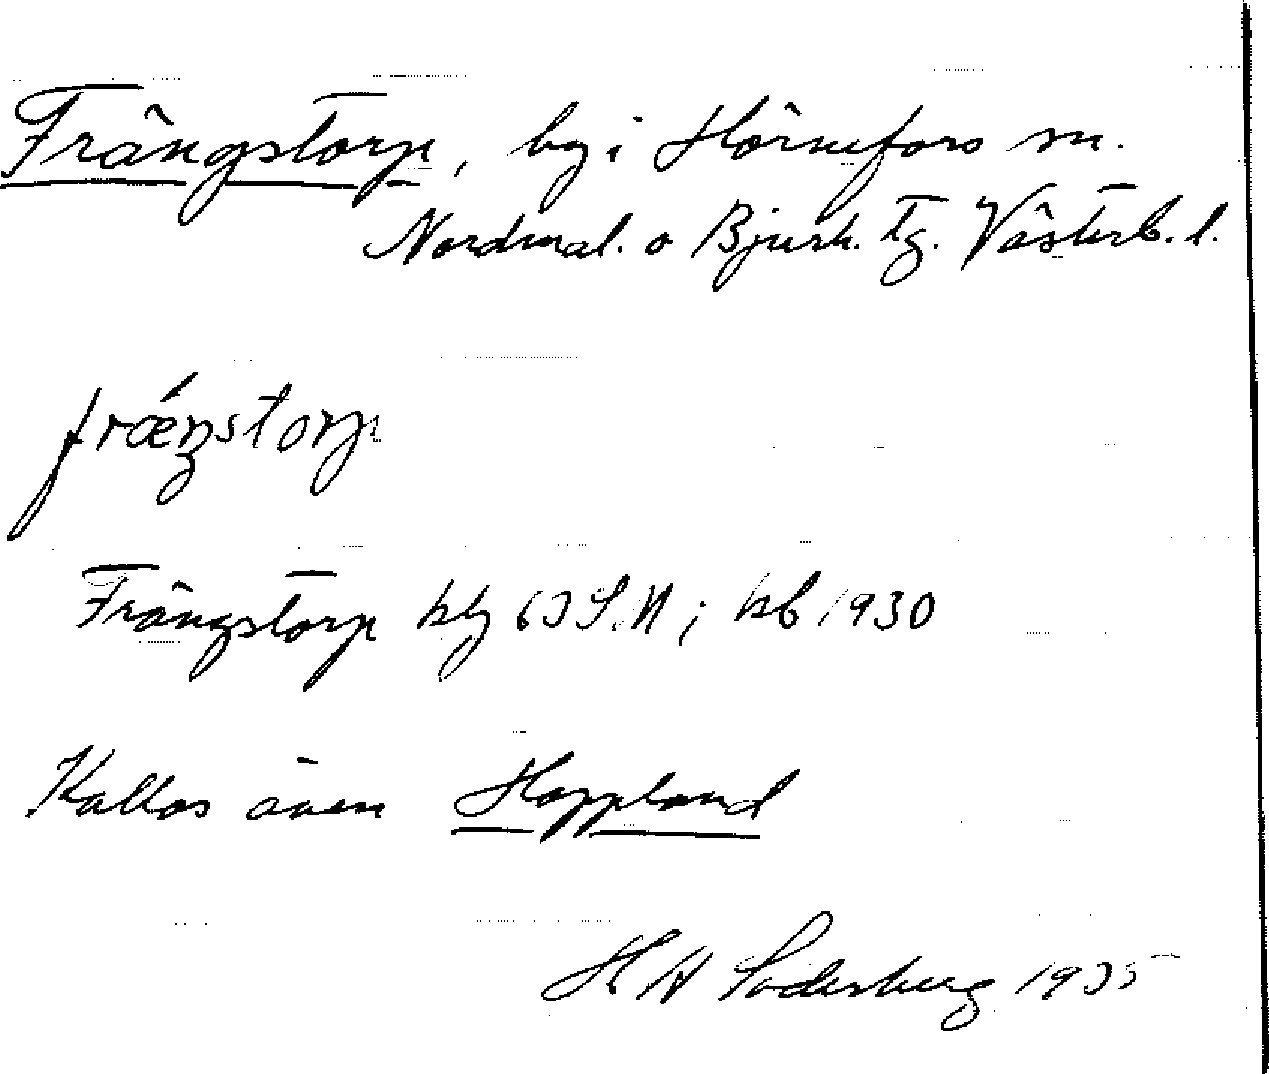 Frängstorp, by i Hörnefors sn.
Nordmal. o Bjurh. tg. Västerb. l.
fræŋstorp
Frängstorp kbg 63 S.N; kb 1930
Kallas även Hoppland
H A Söderberg 1935